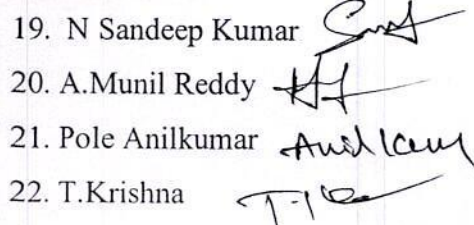 19. N Sandeep Kumar
20. A.Munil Reddy
21. Pole Anilkumar
22. T.Krishna